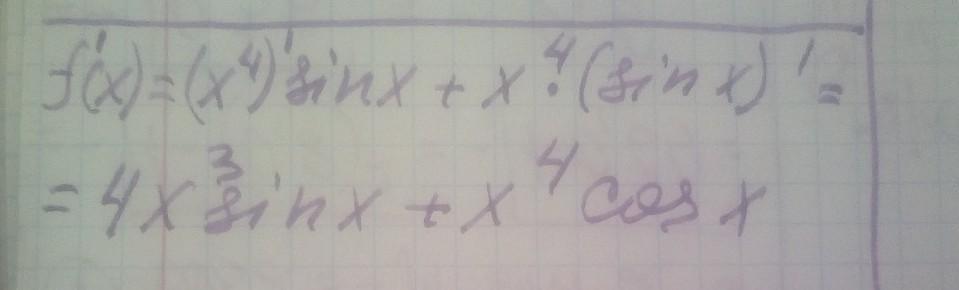 f'(x) = (x⁴)' sin x + x⁴ · (sin x)' =
= 4x³ sin x + x⁴ cos x